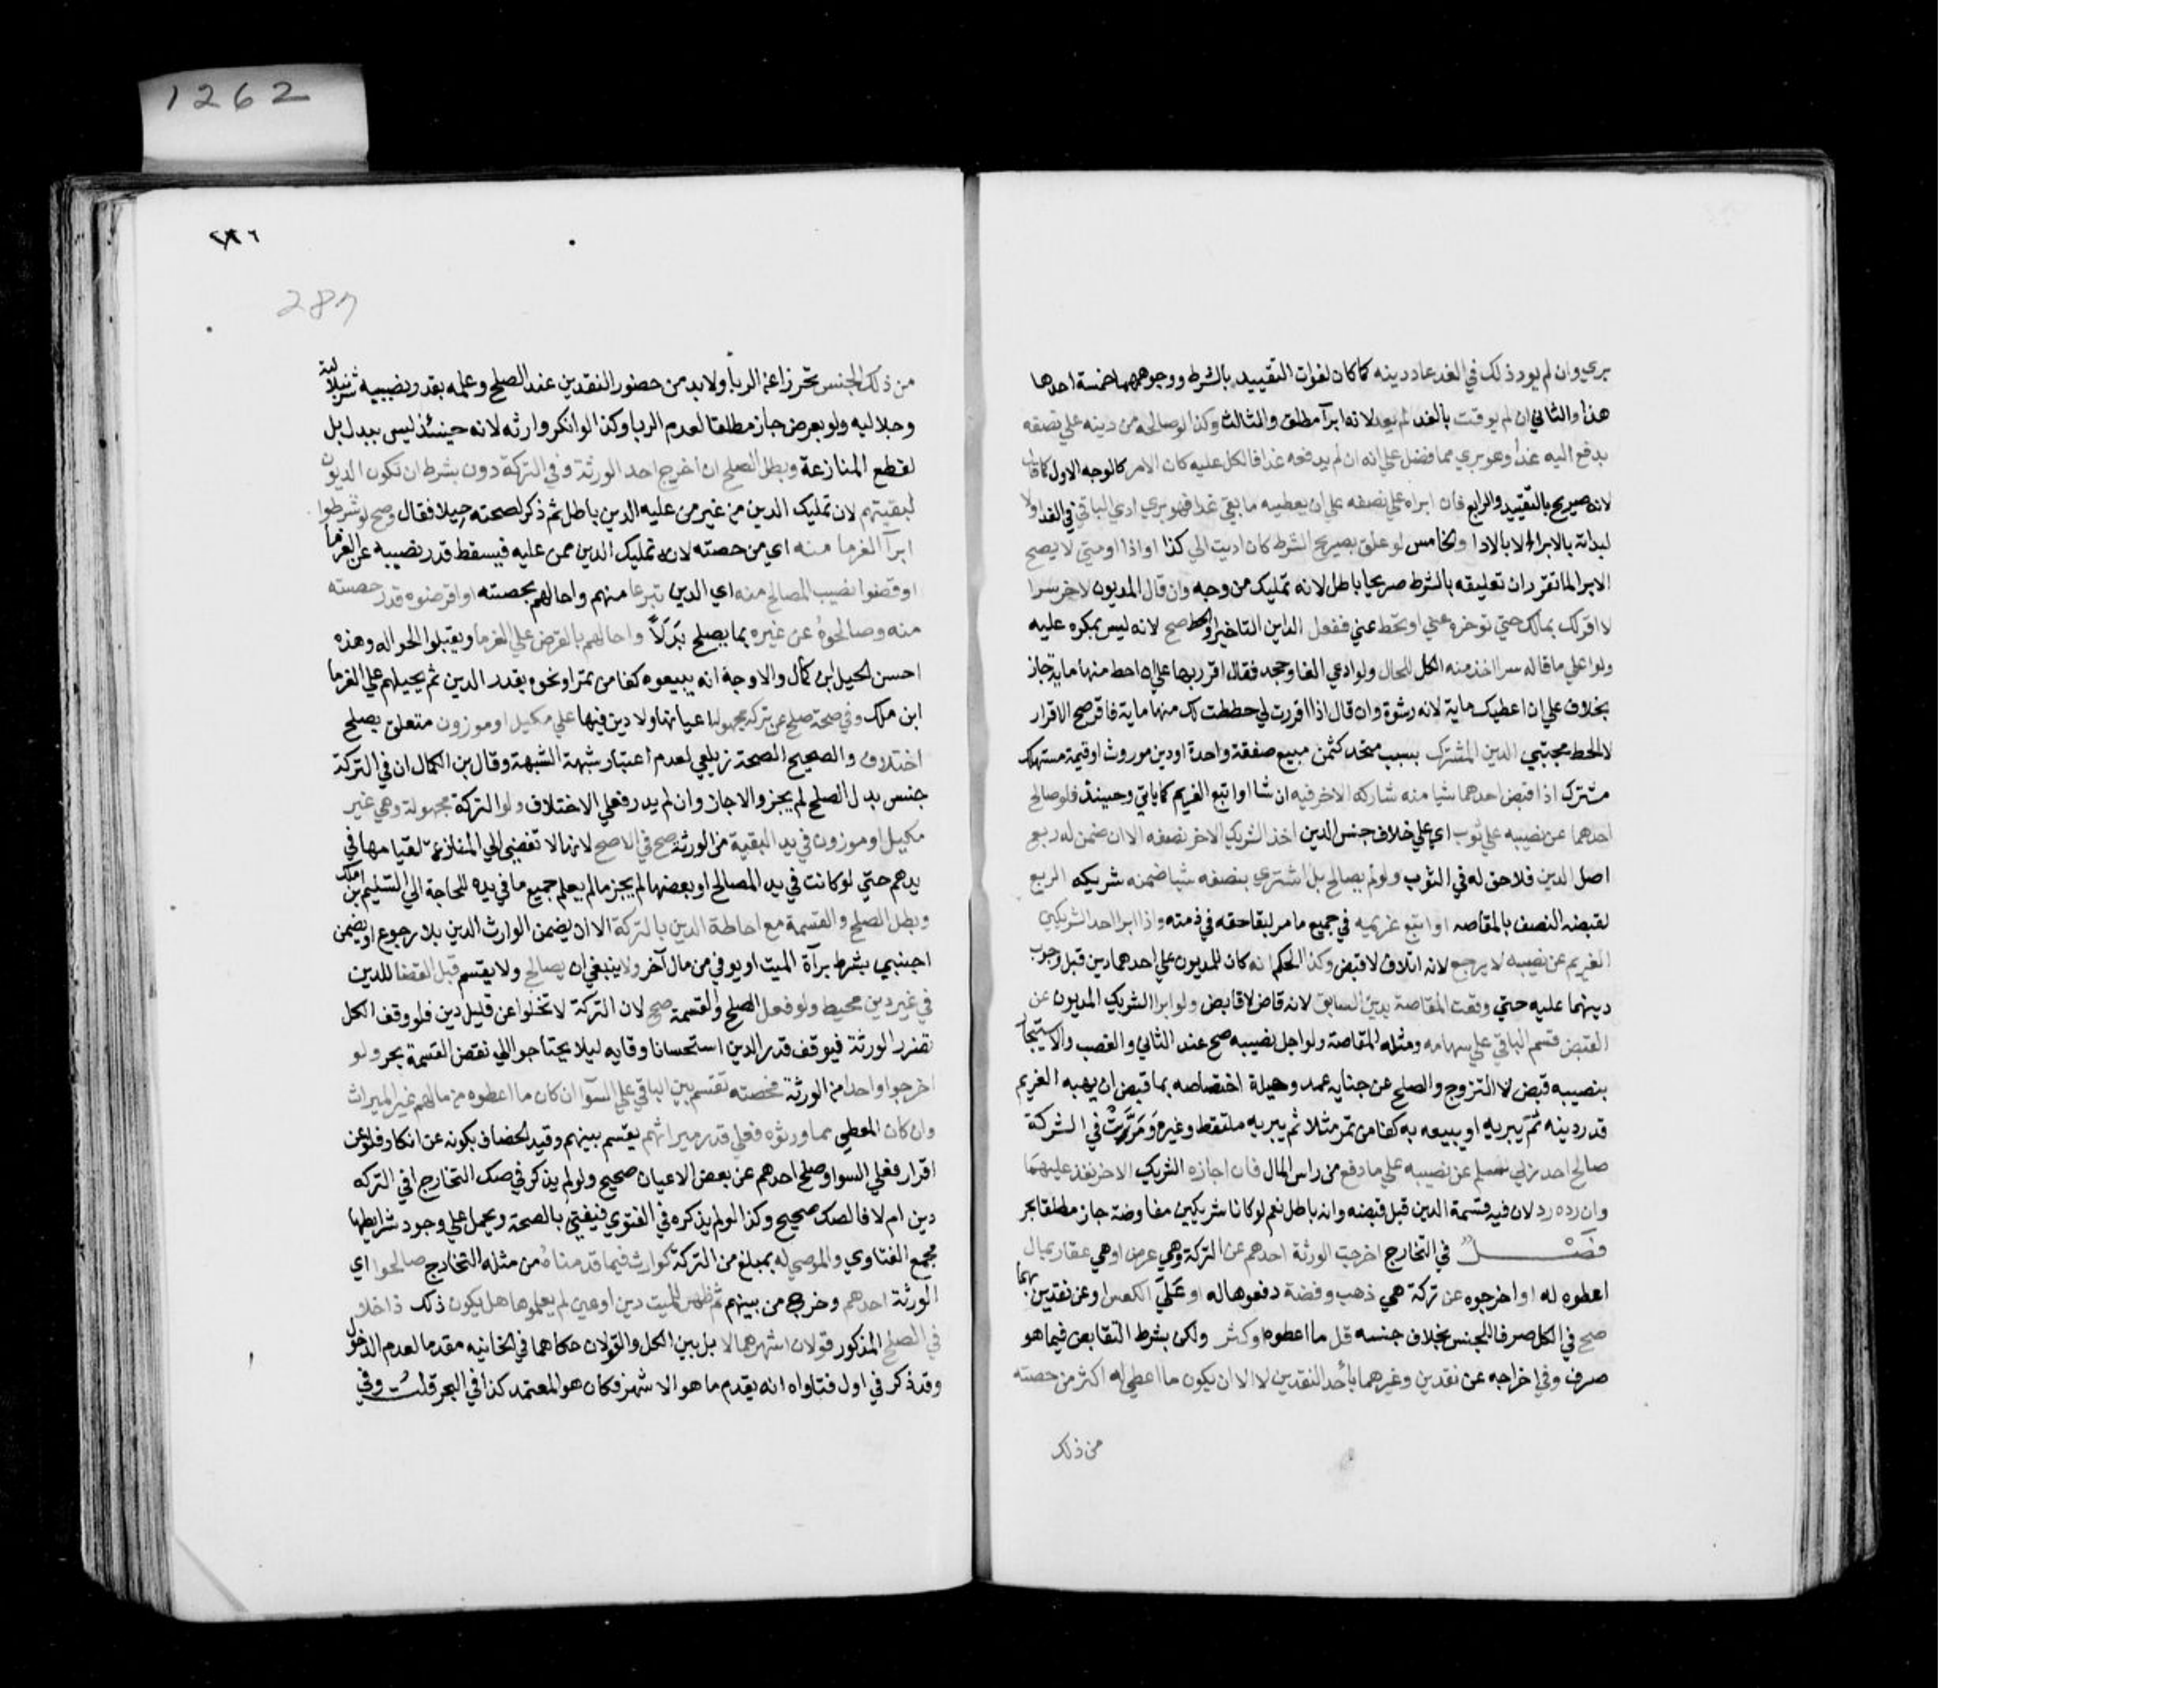 بري وان لم يود ذلك في الغد عاد دينه كما كان لفوات التقييد بالشرط ووجوهها خمسة احدها
هذا والثاني ان لم يوقت بالغد لم يعد لانه ابرآ مطلق والثالث وكذا لو صالحه من دينه علي نصفه
يدفع اليه غدا وهو بري مما فضل علي انه ان لم يدفعه غدا فالكل عليه كان الامر كالوجه الاول كما قال
لانه صريح بالتقييد والرابع فان ابراه علي نصفه علي ان يعطيه ما بقي غدا فهو بري ادي الباقي في الغد اولا
لبداته بالابرا لا بالادا والخامس لو علق بصريح الشرط كان اديت الي كذا او اذا او متي لا يصح
الابرا لما تقرر ان تعليقه بالشرط صريحا باطل لانه تمليك من وجه وان قال المديون لاخر سرا
لا اقر لك بمالك حتي توخره عني او تحط عني ففعل الداين التاخير او الحط صح لانه ليس بمكره عليه
ولو اعلي ما قاله سرا اخذ منه الكل للحال ولو ادعي الفا وجحد فقال اقرر بها علي ان احط منها ماية جاز
بخلاف علي ان اعطيك ماية لانه رشوة وان قال اذا اقررت لي حططت لك منها ماية فاقر صح الاقرار
لا الحط مجتبي الدين المشترك بسبب متحد كثمن مبيع صفقة واحدة او دين موروث او قيمة مستهلك
مشترك اذا قبض احدهما شيا منه شاركه الاخر فيه ان شا او اتبع الغريم كما ياتي وحينئذ فلو صالح
احدهما عن نصيبه علي ثوب اي علي خلاف جنس الدين اخذ الشريك الاخر نصفه الا ان ضمن له ربع
اصل الدين فلا حق له في الثوب ولو لم يصالح بل اشتري بنصفه شيا ضمنه شريكه الربع
لقبضه النصف بالمقاصه او اتبع غريمه في جميع ما مر لبقا حقه في ذمته واذا ابرا احد الشريكين
الغريم عن نصيبه لا يرجع لانه اتلاف لا قبض وكذا الحكم انه كان للمديون علي احدهما دين قبل وجوب
دينهما عليه حتي وقعت المقاصة بدين السابق لانه قاض لا قابض ولو ابرا الشريك المديون عن
البعض قسم الباقي علي سهامه ومثله المقاصة ولو اجل نصيبه صح عند الثاني والغصب والاستيجار
بنصيبه قبض لا التزوج والصلح عن جنايه عمد وحيلة اختصاصه بما قبض ان يهبه الغريم
قدر دينه ثم يبريه او يبيعه به كفا من تمر مثلا ثم يبريه ملتقط وغيره ومرت في الشركة
صالح احد ربي سلم عن نصيبه علي ما دفع من راس المال فان اجازه الشريك الاخر نفذ عليهما
وان رده رد لان فيه قسمة الدين قبل قبضه وانه باطل نعم لو كانا شريكين مفاوضة جاز مطلقا بحر
فصل في التخارج اخرجت الورثة احدهم عن التركة وهي عرض او هي عقار بمال
اعطوه له او اخرجوه عن تركة هي ذهب وفضة دفعوها له او علي العكس او عن نقدين بهما
صح في الكل صرفا للجنس بخلاف جنسه قل ما اعطوه او كثر ولكن بشرط التقابض فيما هو
صرف وفي اخراجه عن نقدين وغيرهما باحد النقدين لا الا ان يكون ما اعطي له اكثر من حصته
من ذلك
287
من ذلك الجنس تحرزا عن الربا ولا بد من حضور النقدين عند الصلح وعلمه بقدر نصيبه شرنبلالية
وجلاليه ولو بعرض جاز مطلقا لعدم الربا وكذا لو انكروا ارثه لانه حينئذ ليس ببدل بل
لقطع المنازعة وبطل الصلح ان اخرج احد الورثة وفي التركة دون بشرط ان تكون الديون
لبقيتهم لان تمليك الدين من غير من عليه الدين باطل ثم ذكر لصحته حيلا فقال وصح لو شرطوا
ابرآ الغرما منه اي من حصته لانه تمليك الدين ممن عليه فيسقط قدر نصيبه عن الغرما
او قضوا نصيب المصالح منه اي الدين تبرعا منهم واحالهم بحصته او اقرضوه قدر حصته
منه وصالحوه عن غيره بما يصلح بدلاً واحالهم بالقرض علي الغرما ويقبلوا الحواله وهذه
احسن الحيل ابن كمال والاوجه انه يبيعوه كفا من تمر او نحوه بقدر الدين ثم يحيلهم علي الغرما
ابن ملك وفي صحة صلح عن تركة مجهولة اعيانها ولا دين فيها علي مكيل او موزون متعلق بصلح
اختلاف والصحيح الصحة زيلعي لعدم اعتبار شبهة الشبهة وقال بن الكمال ان في التركة
جنس بدل الصلح لم يجز والا جاز وان لم يدر فعلي الاختلاف ولو التركة مجهولة وهي غير
مكيل او موزون في يد البقية من الورثة صح في الاصح لانها لا تفضي الي المنازعة لقيامها في
يدهم حتي لو كانت في يد المصالح او بعضها لم يجز ما لم يعلم جميع ما في يده للحاجة الي التسليم بن ملك
وبطل الصلح والقسمة مع احاطة الدين بالتركة الا ان يضمن الوارث الدين بلا رجوع او يضمن
اجنبي بشرط برآة الميت او يوفي من مال آخر ولا ينبغي ان يصالح ولا يقسم قبل القضا للدين
في غير دين محيط ولو فعل الصلح والقسمة صح لان التركة لا تخلوا عن قليل دين فلو وقف الكل
تضرر الورثة فيوقف قدر الدين استحسانا وقايه ليلا يحتاجوا الي نقض القسمة بحر ولو
اخرجوا واحدا من الورثة فحصته تقسم بين الباقي علي السوآ ان كان ما اعطوه من مالهم غير الميراث
وان كان المعطي مما ورثوه فعلي قدر ميراثهم يقسم بينهم وقيد الخصاف بكونه عن انكار فلو عن
اقرار فعلي السوا وصلح احدهم عن بعض الاعيان صحيح ولو لم يذكر في صك التخارج افي التركه
دين ام لا فالصك صحيح وكذا لو لم يذكره في الفتوي فيفتي بالصحة ويحمل علي وجود شرايطها
مجمع الفتاوي والموصي له بمبلغ من التركة كوارث فيما قدمناه من مثله التخارج صالحوا اي
الورثة احدهم وخرج من بينهم ثم ظهر للميت دين او عين لم يعلموها هل يكون ذلك داخلا
في الصلح المذكور قولان اشهرهما لا بل بين الكل والقولان حكاهما في الخانيه مقدما لعدم الدخول
وقد ذكر في اول فتاواه انه يقدم ما هو الاشهر فكان هو المعتمد كذا في البحر قلت وفي
1262